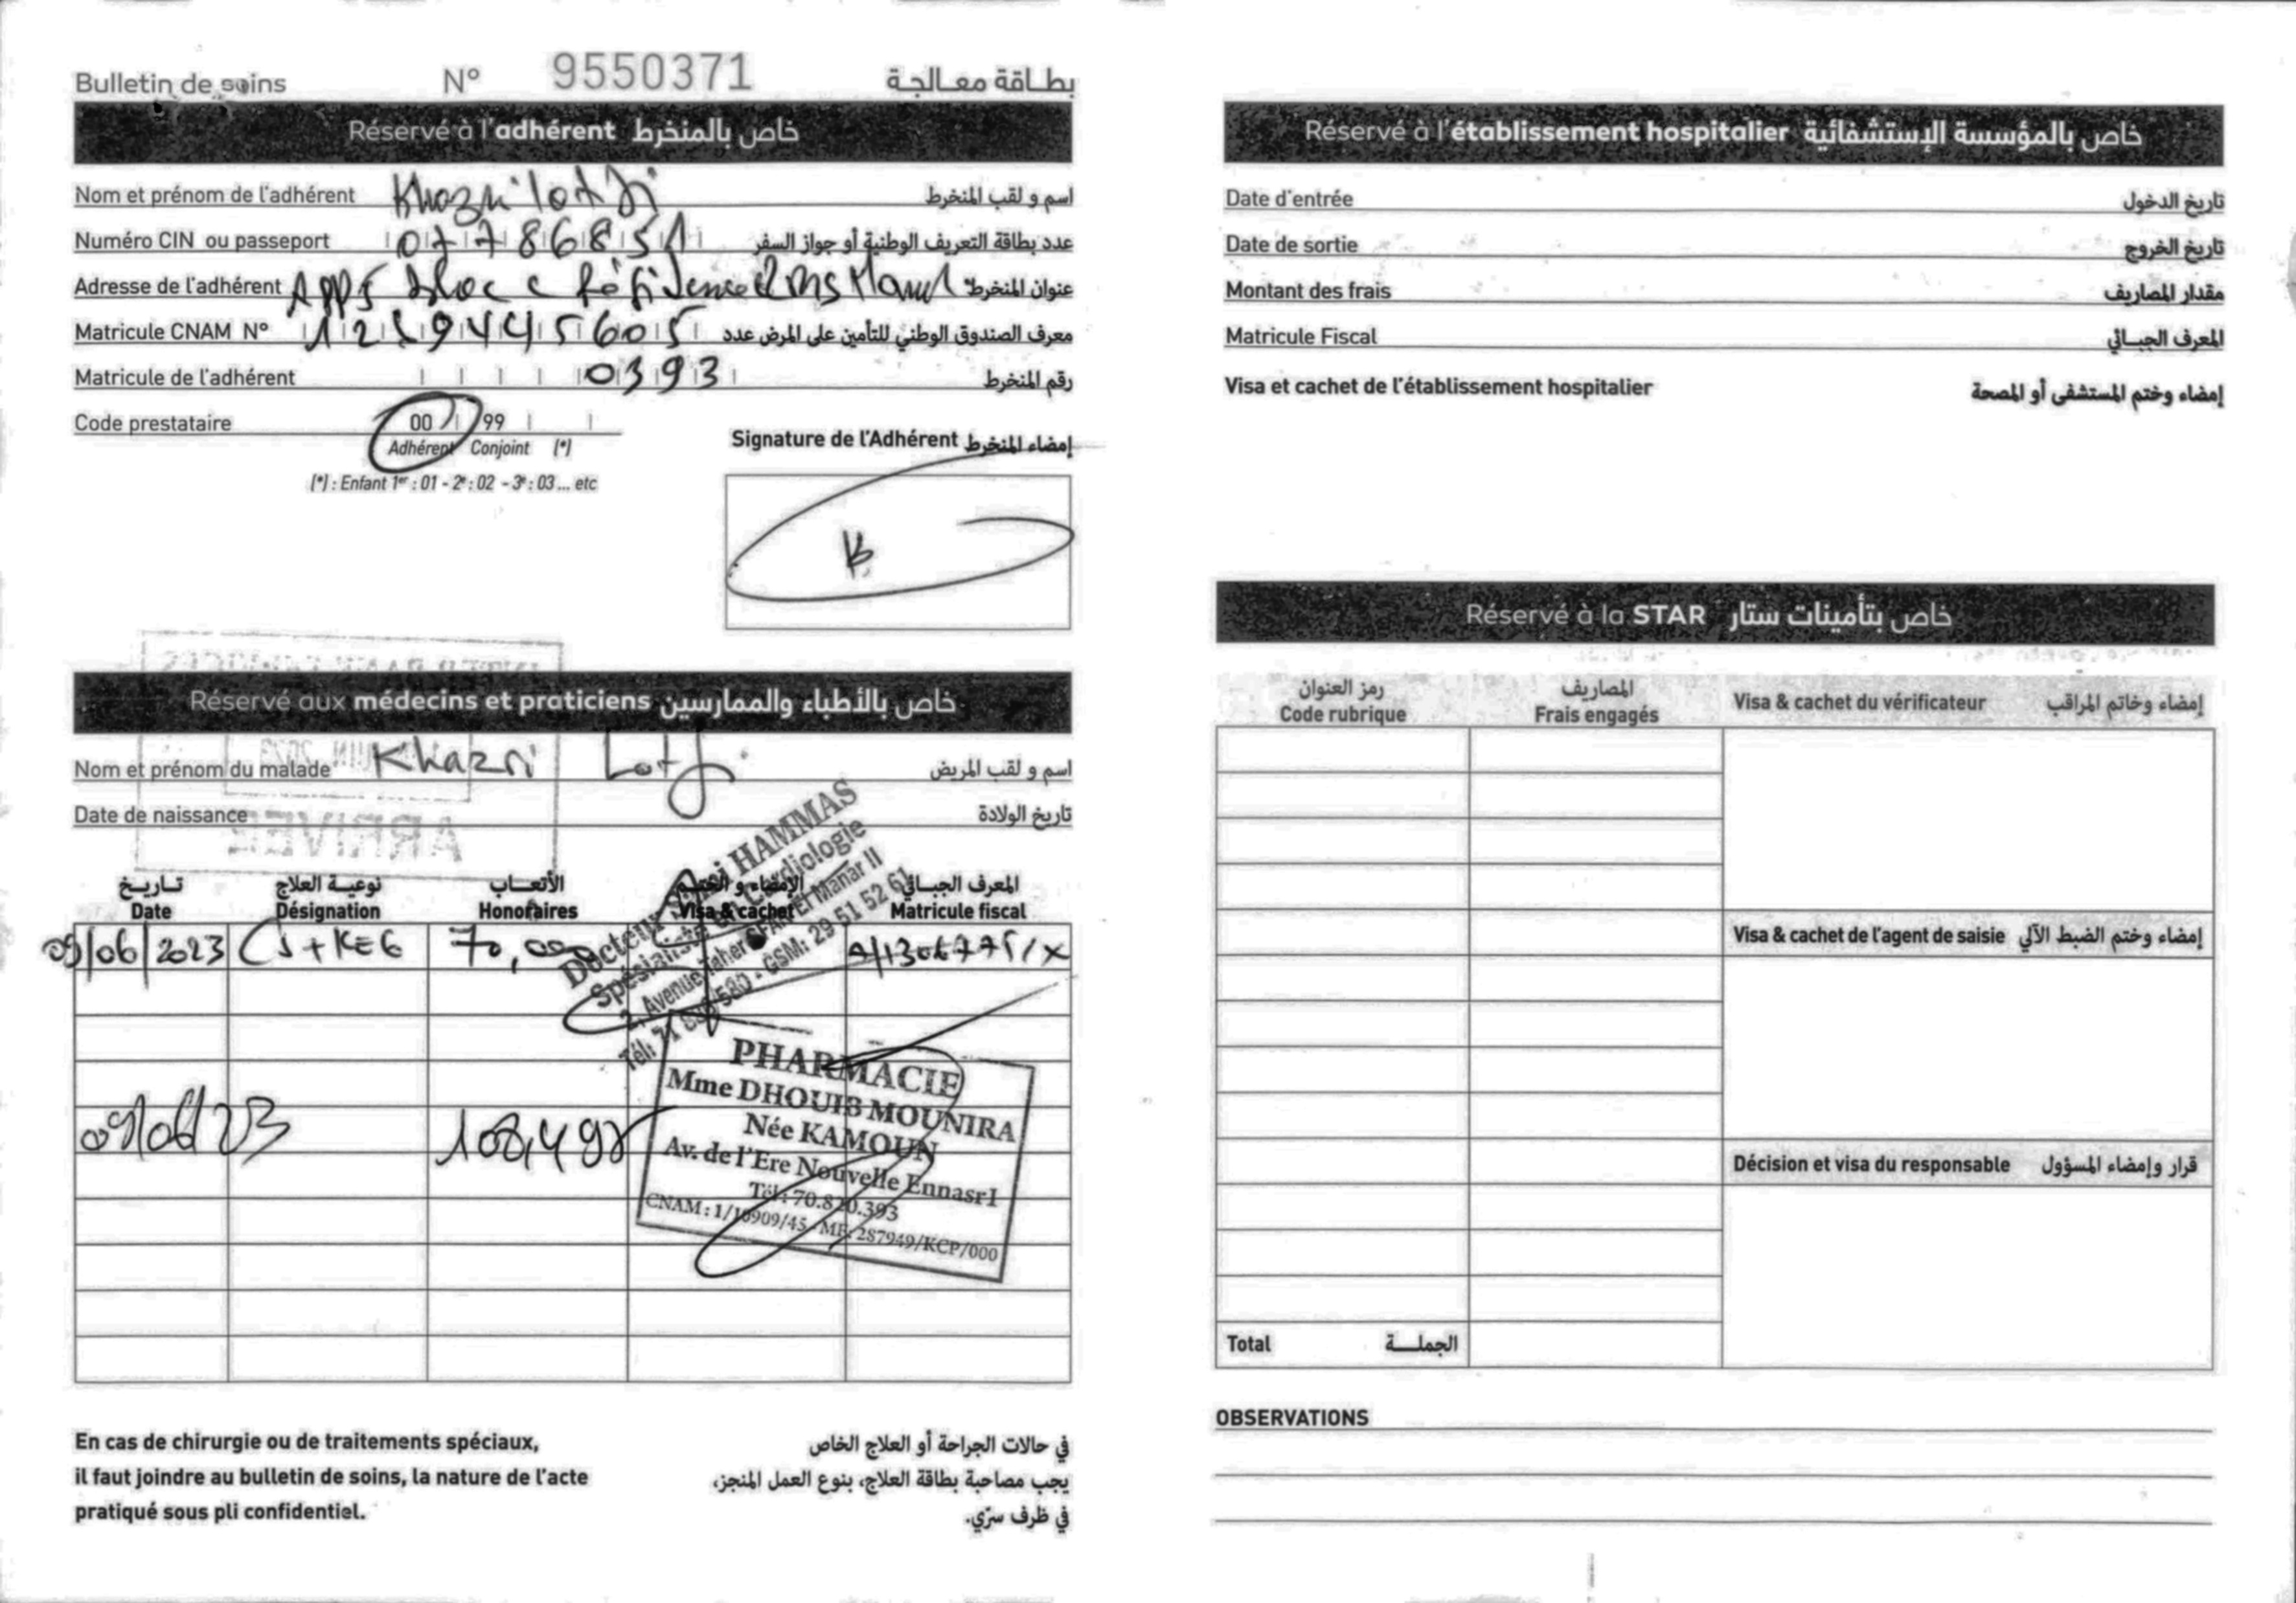 Bulletin de soins N° 9550371 بطاقة معالجة
Réservé à l'adhérent خاص بالمنخرط
Nom et prénom de l'adhérent Khazri lotfi اسم و لقب المنخرط
Numéro CIN ou passeport 07786851 عدد بطاقة التعريف الوطنية أو جواز السفر
Adresse de l'adhérent App5 bloc c Résidence عنوان المنخرط
Matricule CNAM N° معرف الصندوق الوطني للتأمين على المرض عدد
Matricule de l'adhérent 0393 رقم المنخرط
Code prestataire 00 99
Adhérent Conjoint (*)
(*) : Enfant 1er : 01 - 2e : 02 - 3e : 03 ... etc
Signature de l'Adhérent إمضاء المنخرط
Réservé aux médecins et praticiens خاص بالأطباء والممارسين
Nom et prénom du malade Khazri Lotfi اسم و لقب المريض
Date de naissance تاريخ الولادة
ARRIVEE
تاريخ نوعية العلاج الأتعاب الإمضاء و الختم المعرف الجبائي
Date Désignation Honoraires Visa & cachet Matricule fiscal
09/06/2023 CS + KE6 70,000
Docteur HAMMAS
Spécialiste en Cardiologie
2, Avenue Taher SFAR El Manar II
GSM: 29 51 52 61
09/06/23 108,498
PHARMACIE
Mme DHOUIB MOUNIRA
Née KAMOUN
Av. de l'Ere Nouvelle Ennasr I
Tél : 70.820.393
CNAM : 1/10909/45 - MF: 287949/KCP/000
En cas de chirurgie ou de traitements spéciaux,
il faut joindre au bulletin de soins, la nature de l'acte
pratiqué sous pli confidentiel.
في حالات الجراحة أو العلاج الخاص
يجب مصاحبة بطاقة العلاج، بنوع العمل المنجز،
في ظرف سرّي.
Réservé à l'établissement hospitalier خاص بالمؤسسة الإستشفائية
Date d'entrée تاريخ الدخول
Date de sortie تاريخ الخروج
Montant des frais مقدار المصاريف
Matricule Fiscal المعرف الجبائي
Visa et cachet de l'établissement hospitalier إمضاء وختم المستشفى أو المصحة
Réservé à la STAR خاص بتأمينات ستار
رمز العنوان المصاريف
Code rubrique Frais engagés Visa & cachet du vérificateur إمضاء وخاتم المراقب
Visa & cachet de l'agent de saisie إمضاء وختم الضبط الآلي
Décision et visa du responsable قرار وإمضاء المسؤول
Total الجملة
OBSERVATIONS